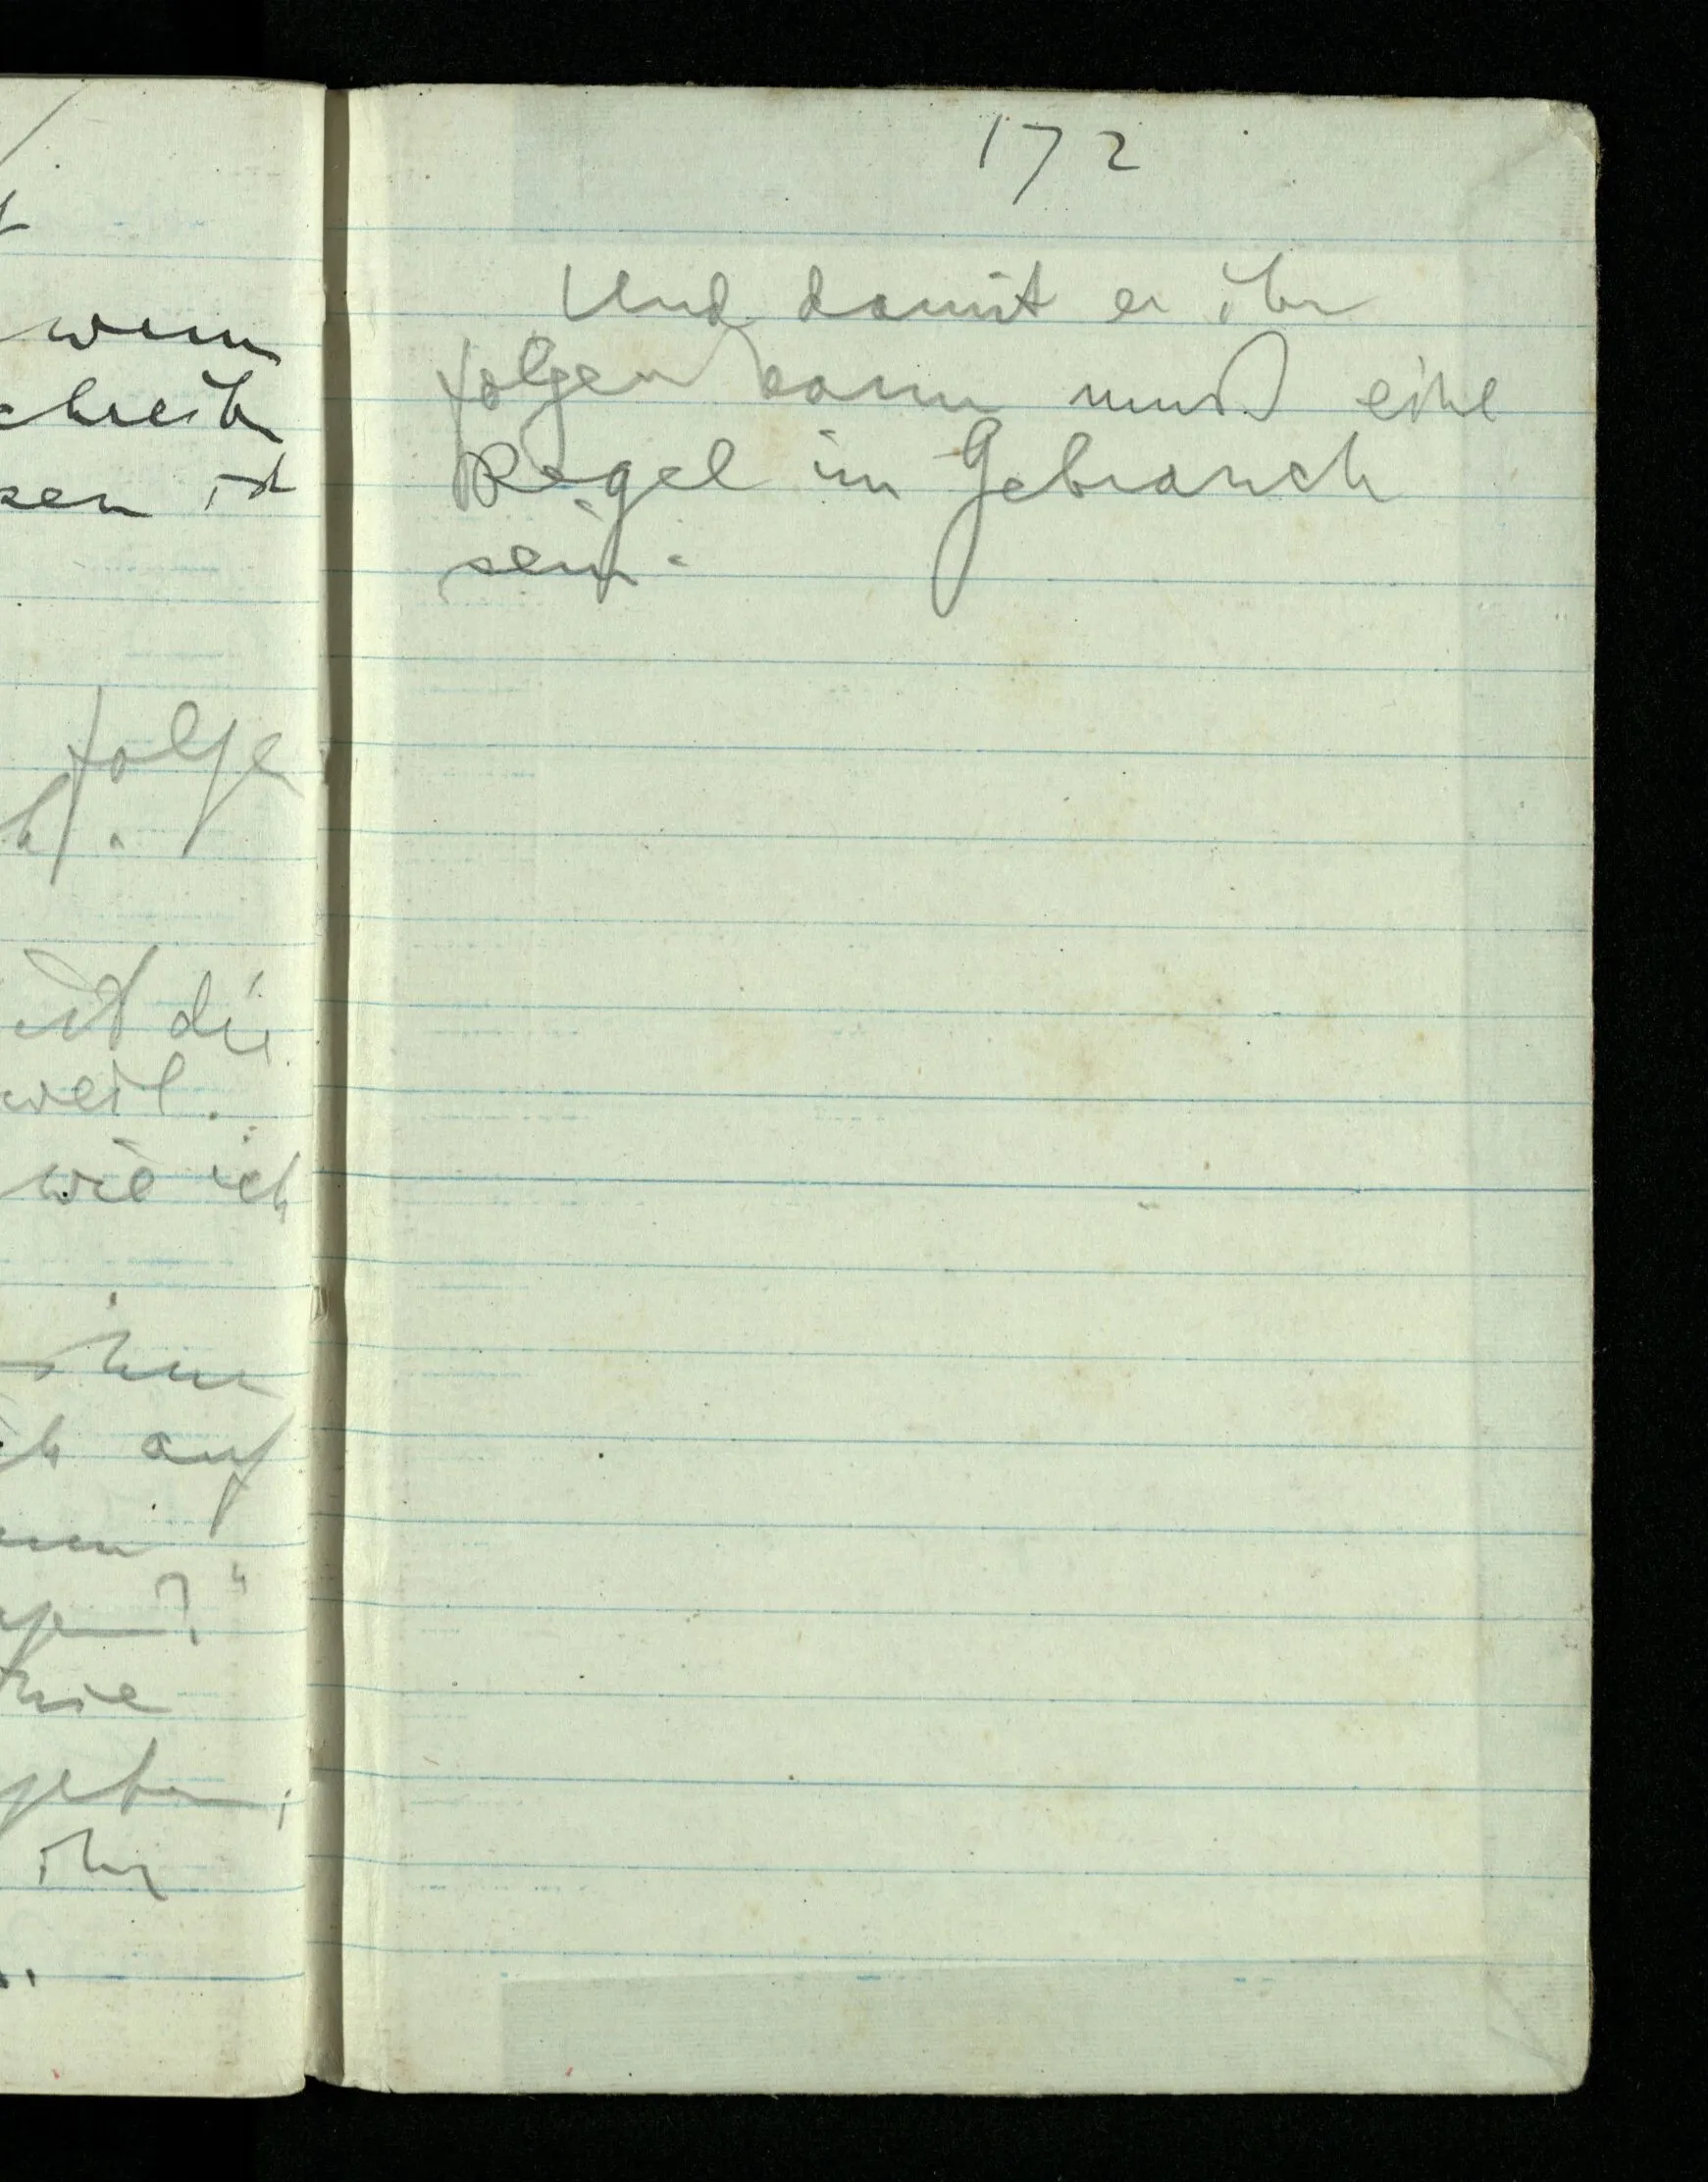 wenn
chreib
sen ist
folge
ist die
weil.
wie ich
ihm
ich auf
"
wie
geben,
ihr
172
Und damit er ihr
folgen kann muß eine
Regel im Gebrauch
sein.